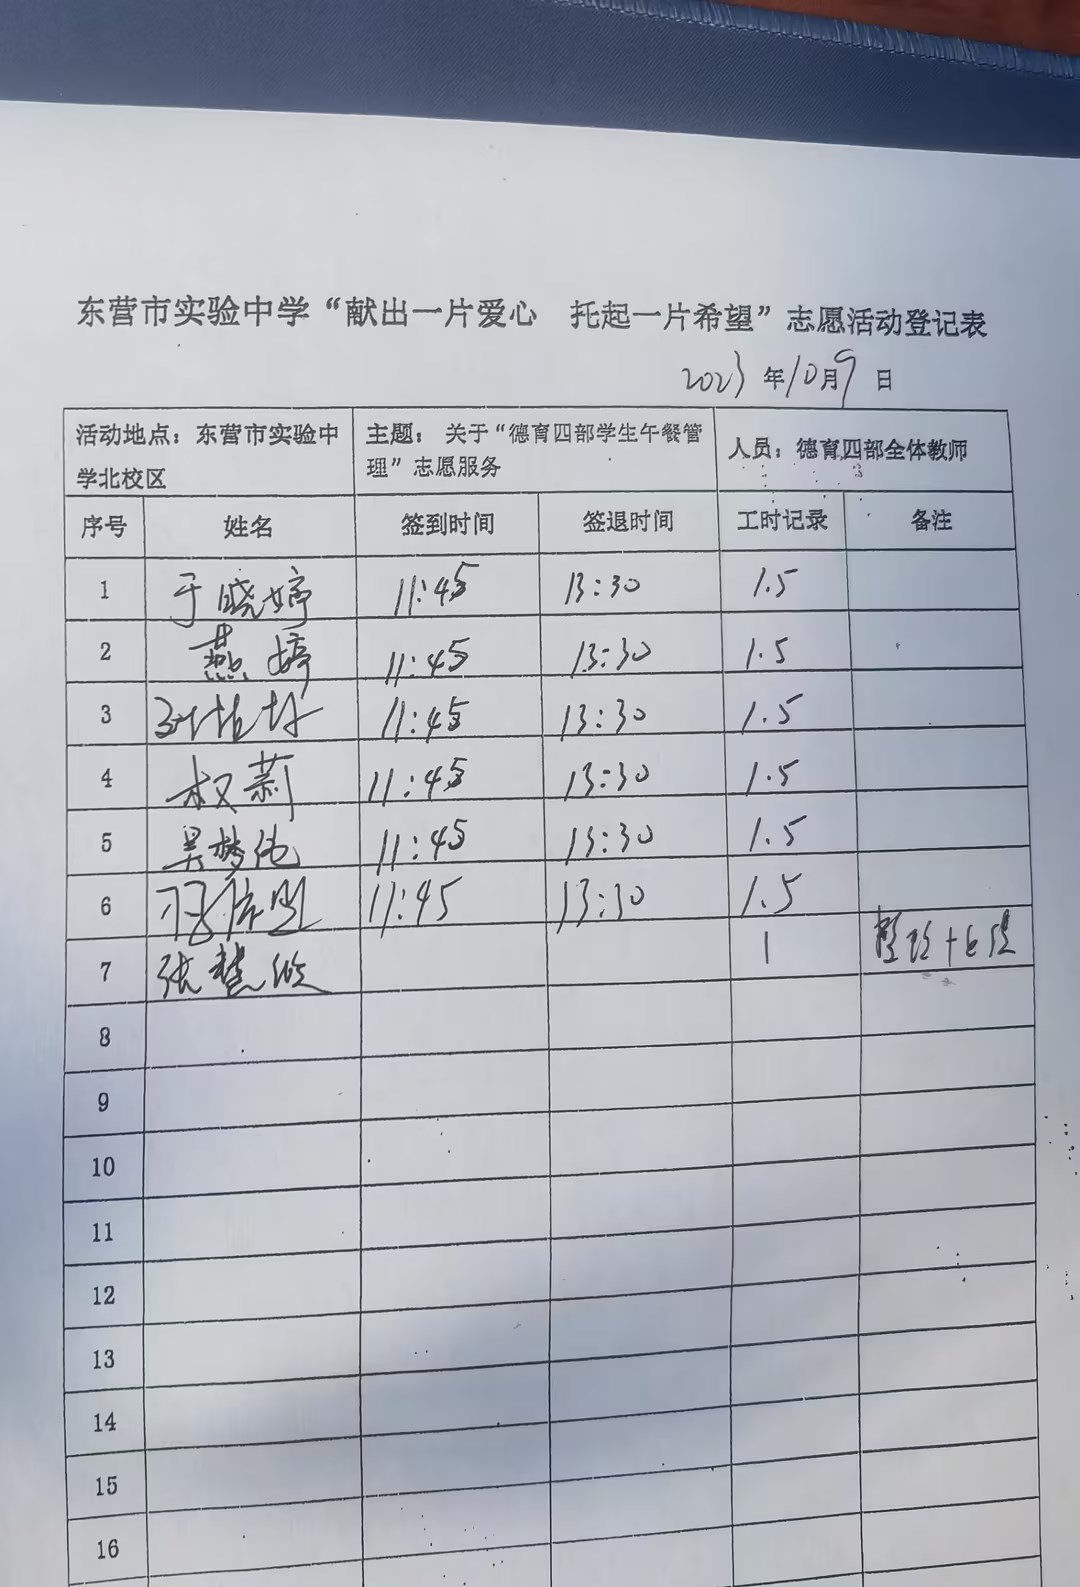 东营市实验中学“献出一片爱心 托起一片希望”志愿活动登记表
2023年10月9日
活动地点：东营市实验中学北校区 主题：关于“德育四部学生午餐管理”志愿服务 人员：德育四部全体教师
序号 姓名 签到时间 签退时间 工时记录 备注
1 于晓婷 11:45 13:30 1.5
2 燕婷 11:45 13:30 1.5
3 11:45 13:30 1.5
4 权莉 11:45 13:30 1.5
5 吴梦 11:45 13:30 1.5
6 11:45 13:30 1.5
7 张慧欣 1
8
9
10
11
12
13
14
15
16